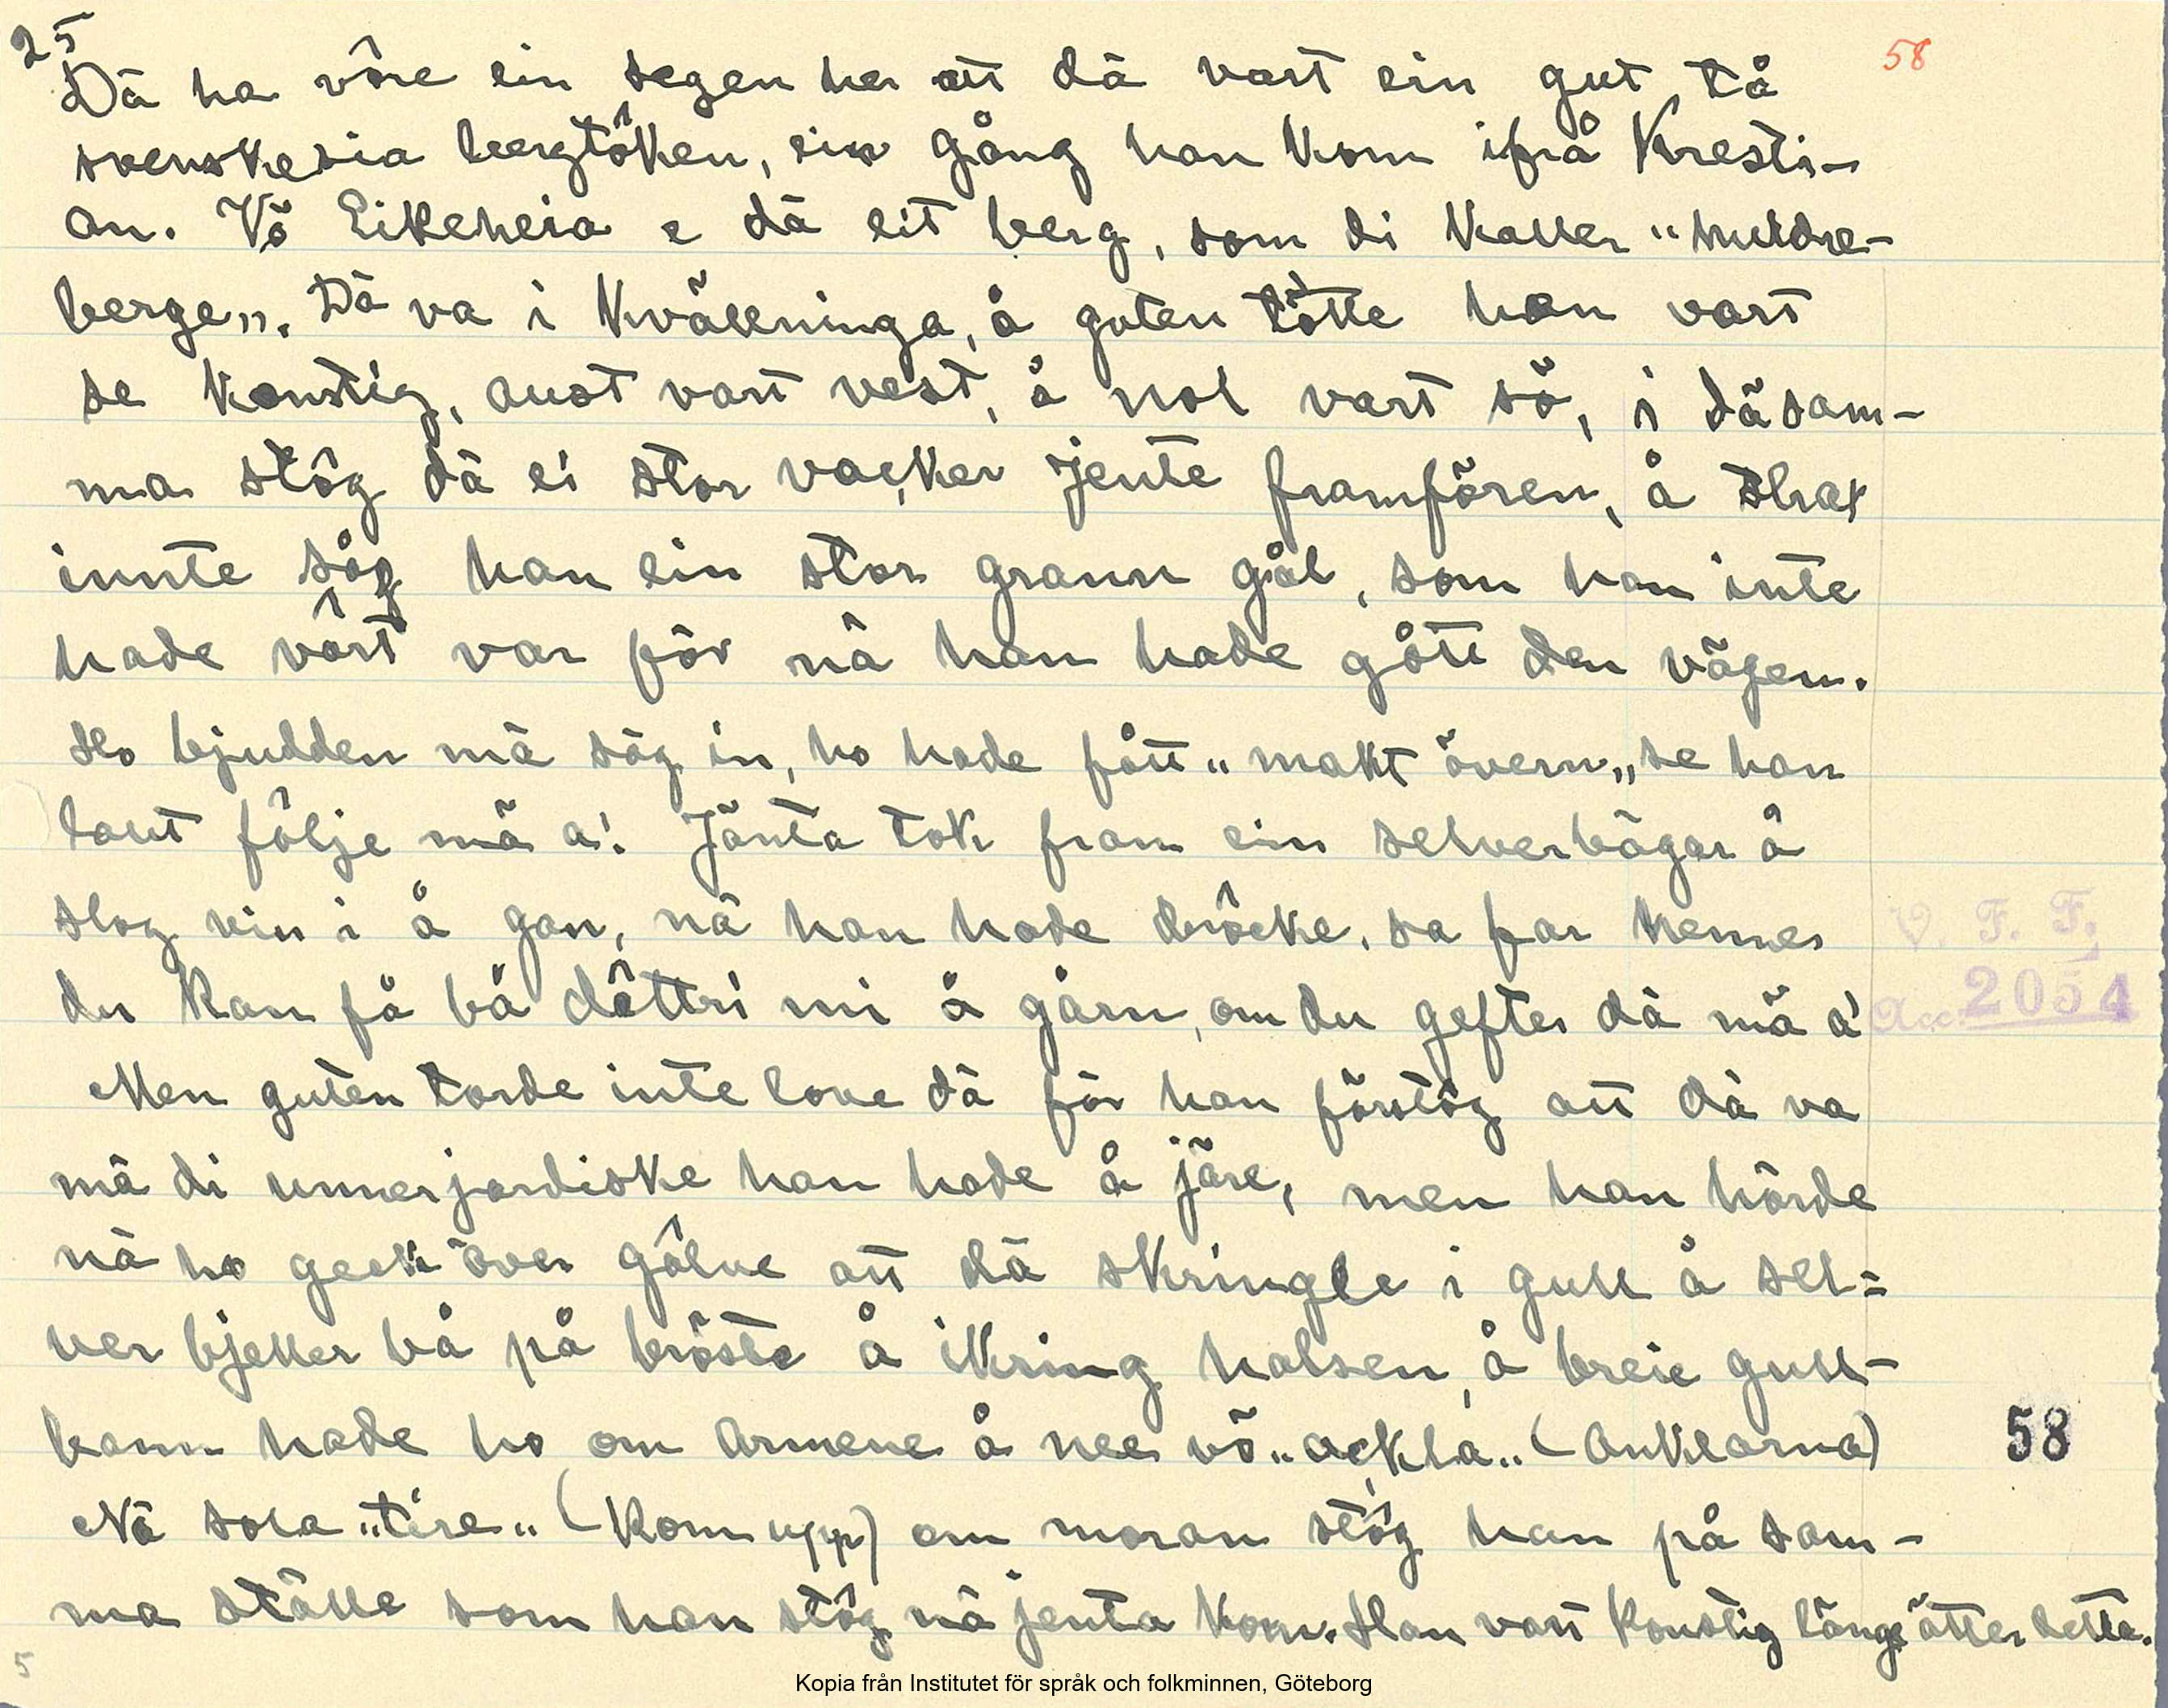 25
58
Dä ha vôre ein segen her att dä vart ein gut tå
svenskesia bergtôken, ein gång han kom ifrå Kresti-
an. Vö Eikeheia e dä eit berg, som di kaller "huldre-
berge". Dä va i kvällninga, å guten tôtte han vart
se konstig, aust vart vest, å nol vart sö, i däsam-
ma stôg dä ei stor vacker jente framfören, å strax
innte såg han ein stor grann gål, som han inte
hade vôrt var för nä han hade gått den vägen.
Ho bjudden mä säg in, ho hade fått "makt övern" se han
laut fôlje mä a! Jänta tok fram ein selverbägar å
slog vin i å gan, nä han hade drôcke, sa far hennes
du kan få bå dôttri mi å gårn, om du gefter dä mä a!
Men guten torde inte love dä för han förstôg att dä va
mä di unnerjordiske han hade å järe, men han hörde
nä ho geck över gôlve att dä skringle i gull å sel=
ver bjeller bå på bröste å ikring halsen, å breie gull-
bann hade ho om armene å nee vö "ackla" (anklarna)
Nä sola "tire" (kom upp) om moran stôg han på sam-
ma ställe som han stôg nä jenta kom. Han vart konstig länge ätter dette.
V. F. F.
Acc. 2054
58
5
Kopia från Institutet för språk och folkminnen, Göteborg